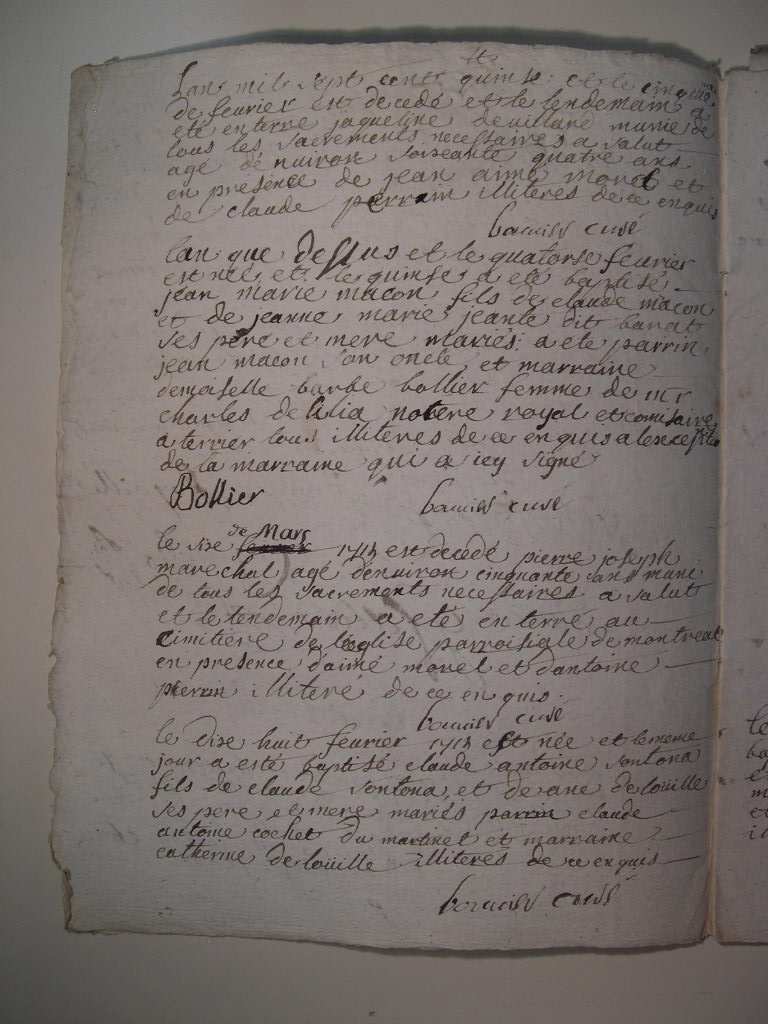 Lans mil sept cents quinse : et le cinquie
de feurier est decedé et le lendemain a
eté en terré jaqueline deuillard munie de
tous les sacrements necessaires a salut
agé dénuiron soixeante quatre ans
en présence de jean aimé morel et
de claude perrin illiteres de ce enquis
curé
lan que dessus et le quatorse feurier
est née et le quinse a eté baptisé
jean marie macon fils de claude macon
et de jeanne marie jeante dit barat
ses pere et mere mariés a ete parrin
jean macon son oncle et marraine
demoiselle barbe bollier femme de mr
charles de lilia notere royal et comisaire
a terrier tous illiteres de ce enquis a lexception
de la marraine qui a icy signé
Bollier
curé
le dixe de Mars 1715 est decedé pierre joseph
marechal agé dénuiron cinquante ans muni
de tous les sacrements necessaires a salut
et le lendemain a eté en terré au
cimitiére de léglise parroisiale de montreal
en presence daimé morel et dantoine
perrin illiteré de ce en quis
curé
le dixe huit feurier 1715 est née et le meme
jour a esté baptisé claude antoine sontona
fils de claude sontona et de ane de louille
ses pere et mere mariés parrin claude
antoine cochet du martinet et marraine
catherine de louille illiteres de ce enquis
curé